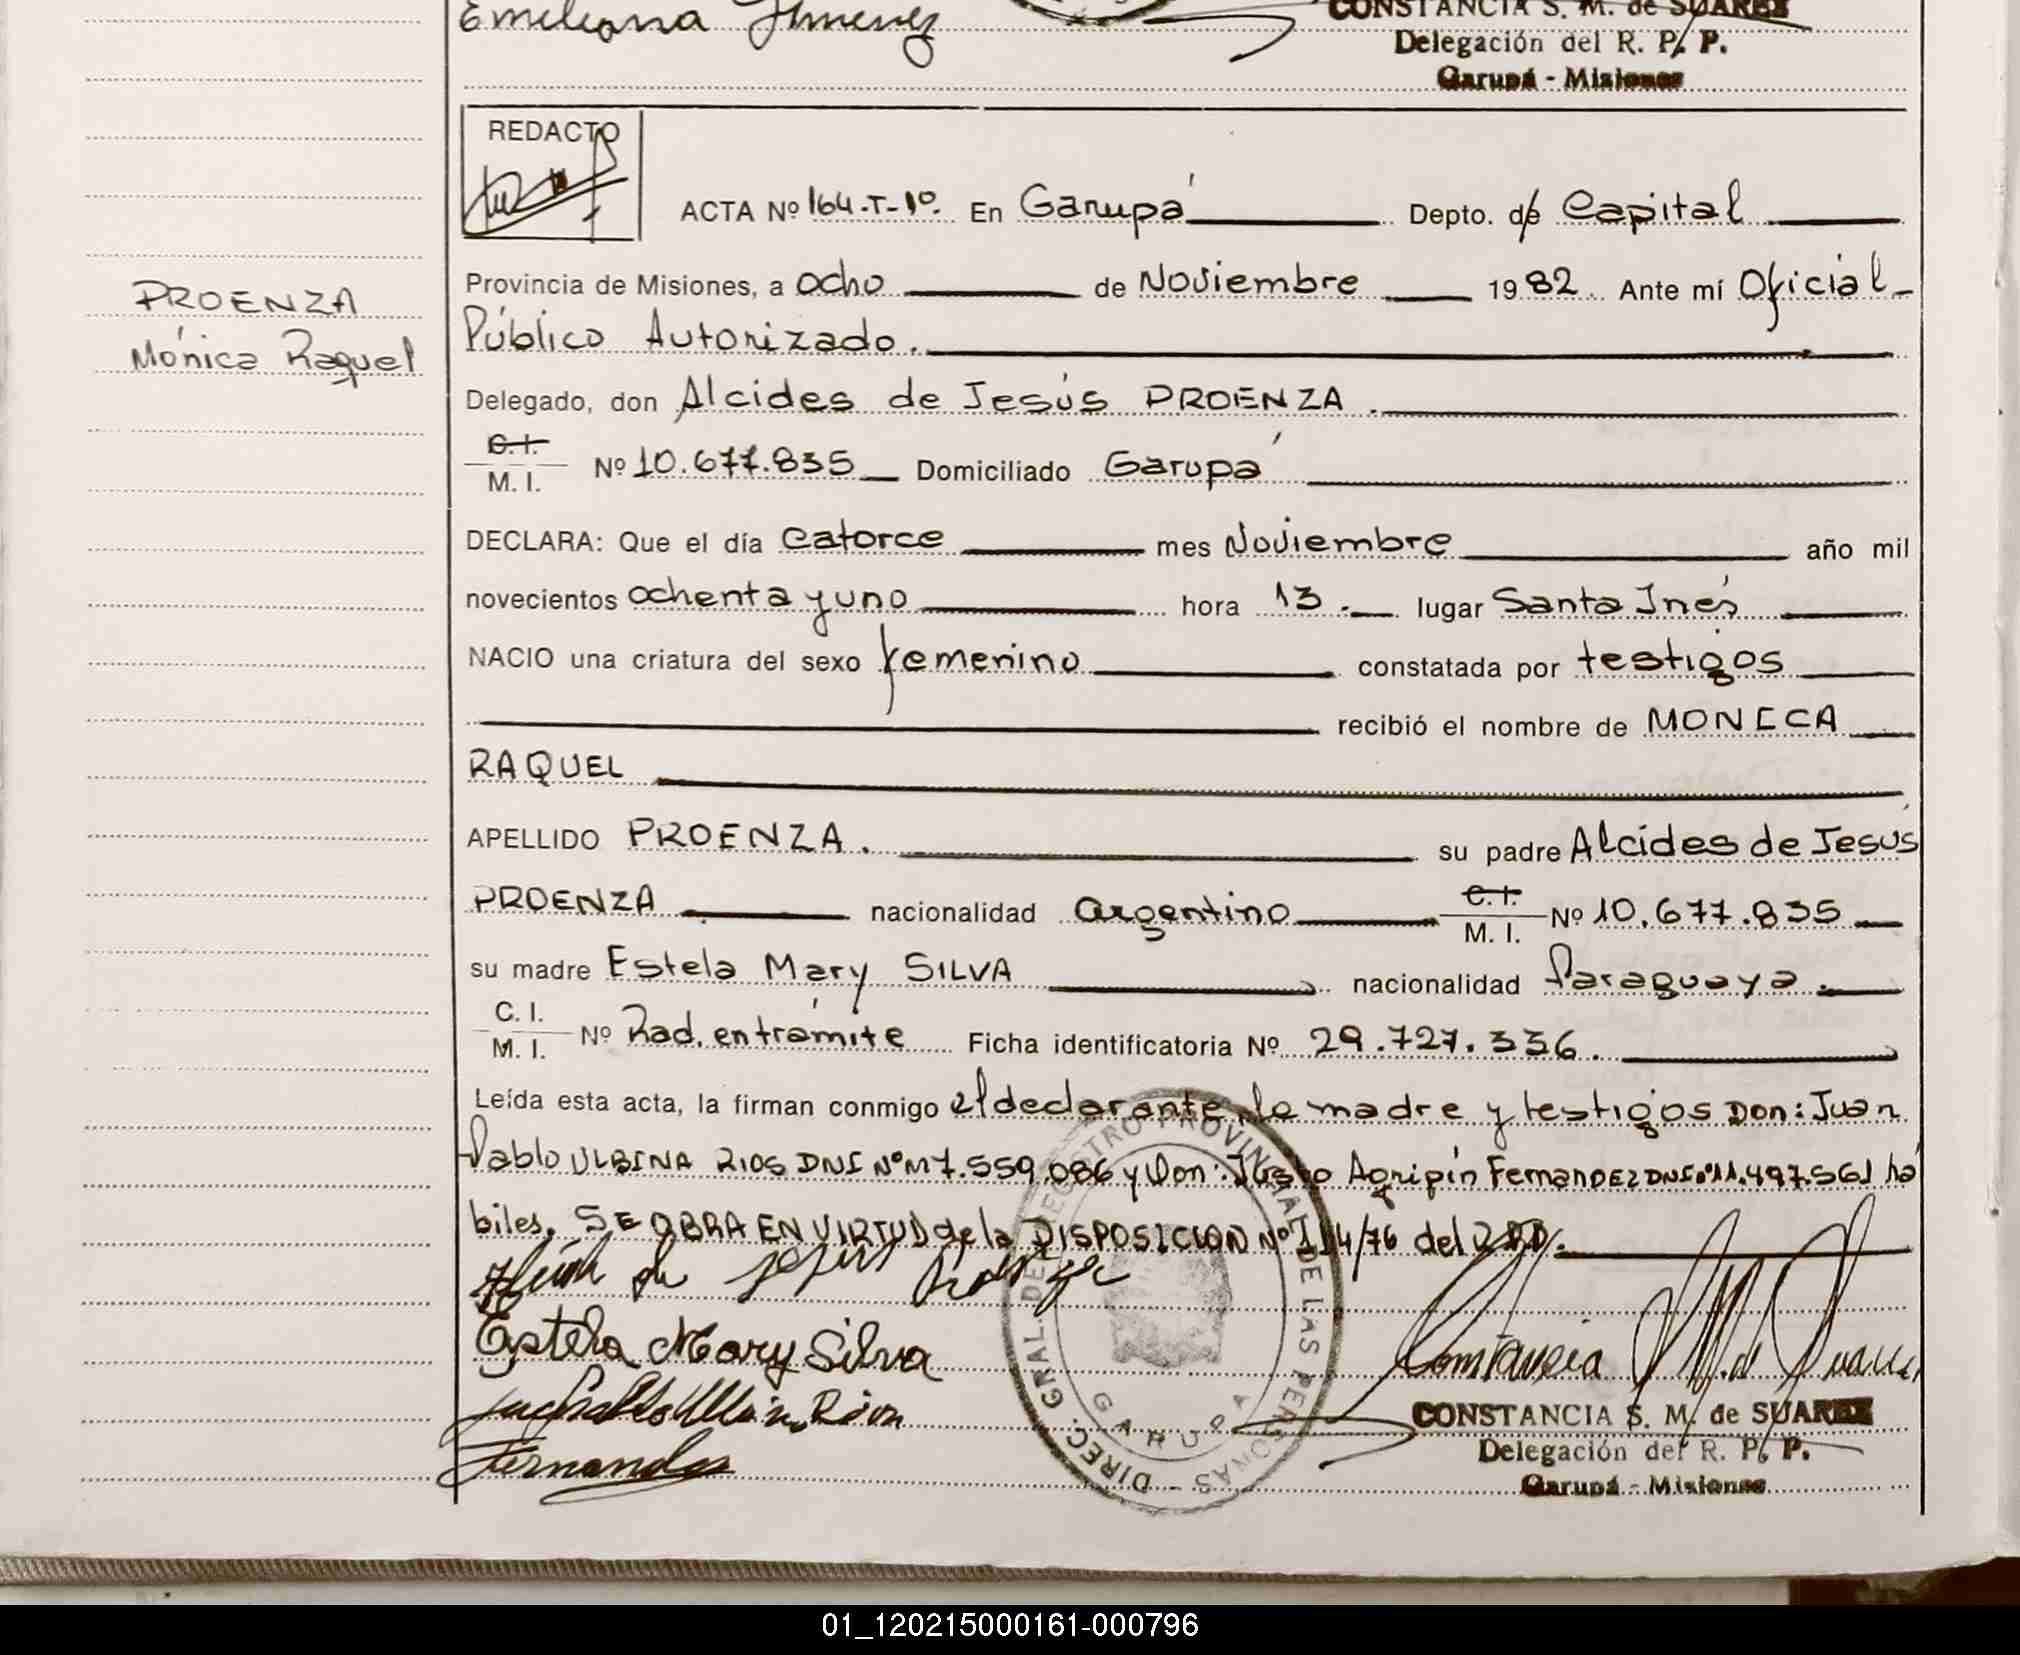 Emiliana Jimenez
CONSTANCIA S. M. de SUAREZ
Delegación del R. P. P.
Garupá - Misiones
REDACTO
ACTA Nº 164-T-1º. En Garupá Depto. de Capital
PROENZA
Mónica Raquel
Provincia de Misiones, a ocho de Noviembre 1982. Ante mí Oficial
Público Autorizado.
Delegado, don Alcides de Jesús PROENZA.
C.I.
M. I. Nº 10.677.835 Domiciliado Garupá
DECLARA: Que el día Catorce mes Noviembre año mil
novecientos ochenta y uno hora 13. lugar Santa Inés
NACIO una criatura del sexo femenino constatada por testigos
recibió el nombre de MONICA
RAQUEL
APELLIDO PROENZA. su padre Alcides de Jesús
PROENZA nacionalidad argentino C.I. M. I. Nº 10.677.835
su madre Estela Mary SILVA nacionalidad Paraguaya.
C. I.
M. I. Nº Rad. en trámite Ficha identificatoria Nº 29.727.336.
Leída esta acta, la firman conmigo el declarante, la madre y testigos Don: Juan
Pablo ULBINA RIOS DNI Nº M7.559.086 y Don: Justo Agripín Fernandez DNI Nº 11.497.561 há
biles. SE OBRA EN VIRTUD de la DISPOSICION Nº 114/76 del
de Jesus
Estela Mary Silva
Fernandez
DIREC. GRAL. DE REGISTRO PROVINCIAL DE LAS PERSONAS
GARUPA
Constancia S. M. de Suarez
CONSTANCIA S. M. de SUAREZ
Delegación del R. P. P.
Garupá - Misiones
01_120215000161-000796